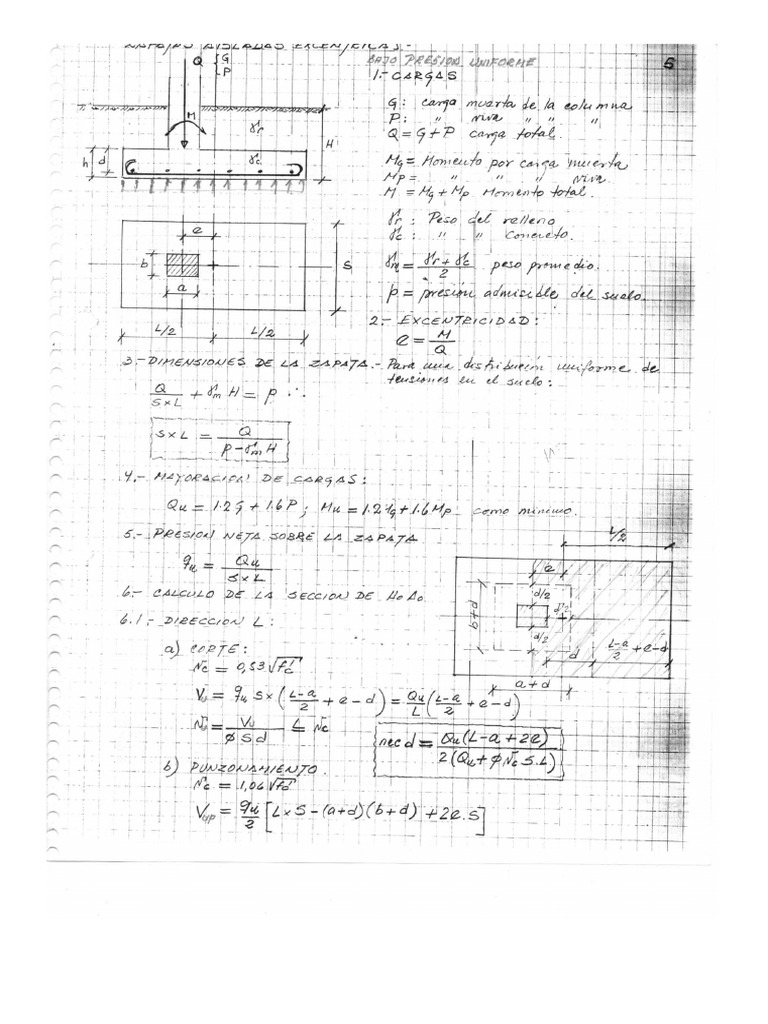 ZAPATAS AISLADAS EXCENTRICAS.-
BAJO PRESION UNIFORME
5
1.- CARGAS
G: carga muerta de la columna
P: " viva " " "
Q = G + P carga total.
Mg = Momento por carga muerta
Mp = " " " viva.
M = Mg + Mp Momento total.
γr: Peso del relleno
γc: " " concreto.
γm = (γr + γc)/2 peso promedio.
p = presión admisible del suelo.
2.- EXCENTRICIDAD:
e = M/Q
Q {G P
M
γr
H
h d
γc
e
b
a
S
L/2 L/2
3.- DIMENSIONES DE LA ZAPATA.- Para una distribución uniforme de
tensiones en el suelo:
Q/(S×L) + γm H = p ∴
S×L = Q/(p - γm H)
4.- MAYORACION DE CARGAS:
Qu = 1.2G + 1.6P ; Mu = 1.2Mg + 1.6Mp como mínimo.
5.- PRESION NETA SOBRE LA ZAPATA
qu = Qu/(S×L)
6.- CALCULO DE LA SECCION DE HoAo.
6.1.- DIRECCION L:
a) CORTE:
Nc = 0,53√f'c
Vu = qu S×((L-a)/2 + e - d) = Qu/L ((L-a)/2 + e - d)
Nu = Vu/(φ S d) ≤ Nc
nec d = Qu(L - a + 2e)/(2(Qu + φ Nc S.L))
b) PUNZONAMIENTO
Nc = 1,06√f'c
Vup = qu/2 [L×S - (a+d)(b+d) + 2e.S]
L/2
e
d/2
d/2
d/2
b+d
d
(L-a)/2 + e - d
a+d